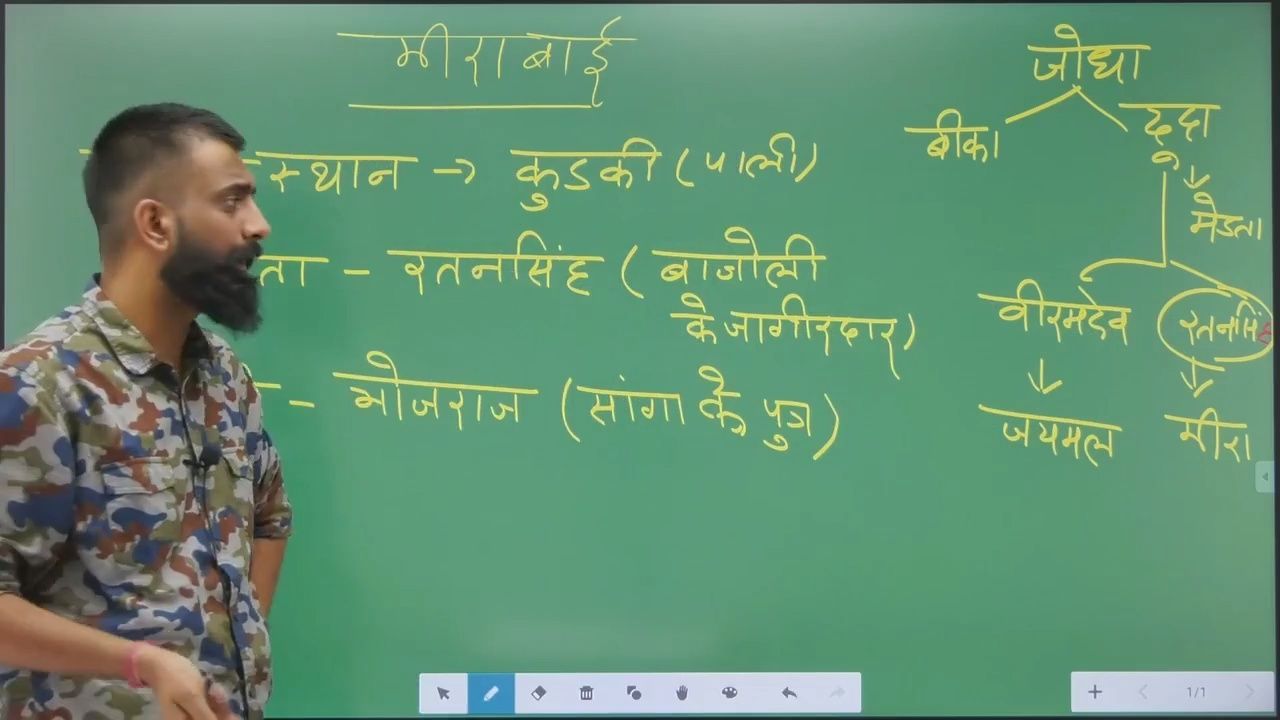 मीराबाई
स्थान → कुडकी (पाली)
ता - रतनसिंह (बाजोली
के जागीरदार)
- भोजराज (सांगा के पुत्र)
जोधा
बीका दूदा
मेडता
वीरमदेव रतनसिंह
जयमल मीरा
1/1